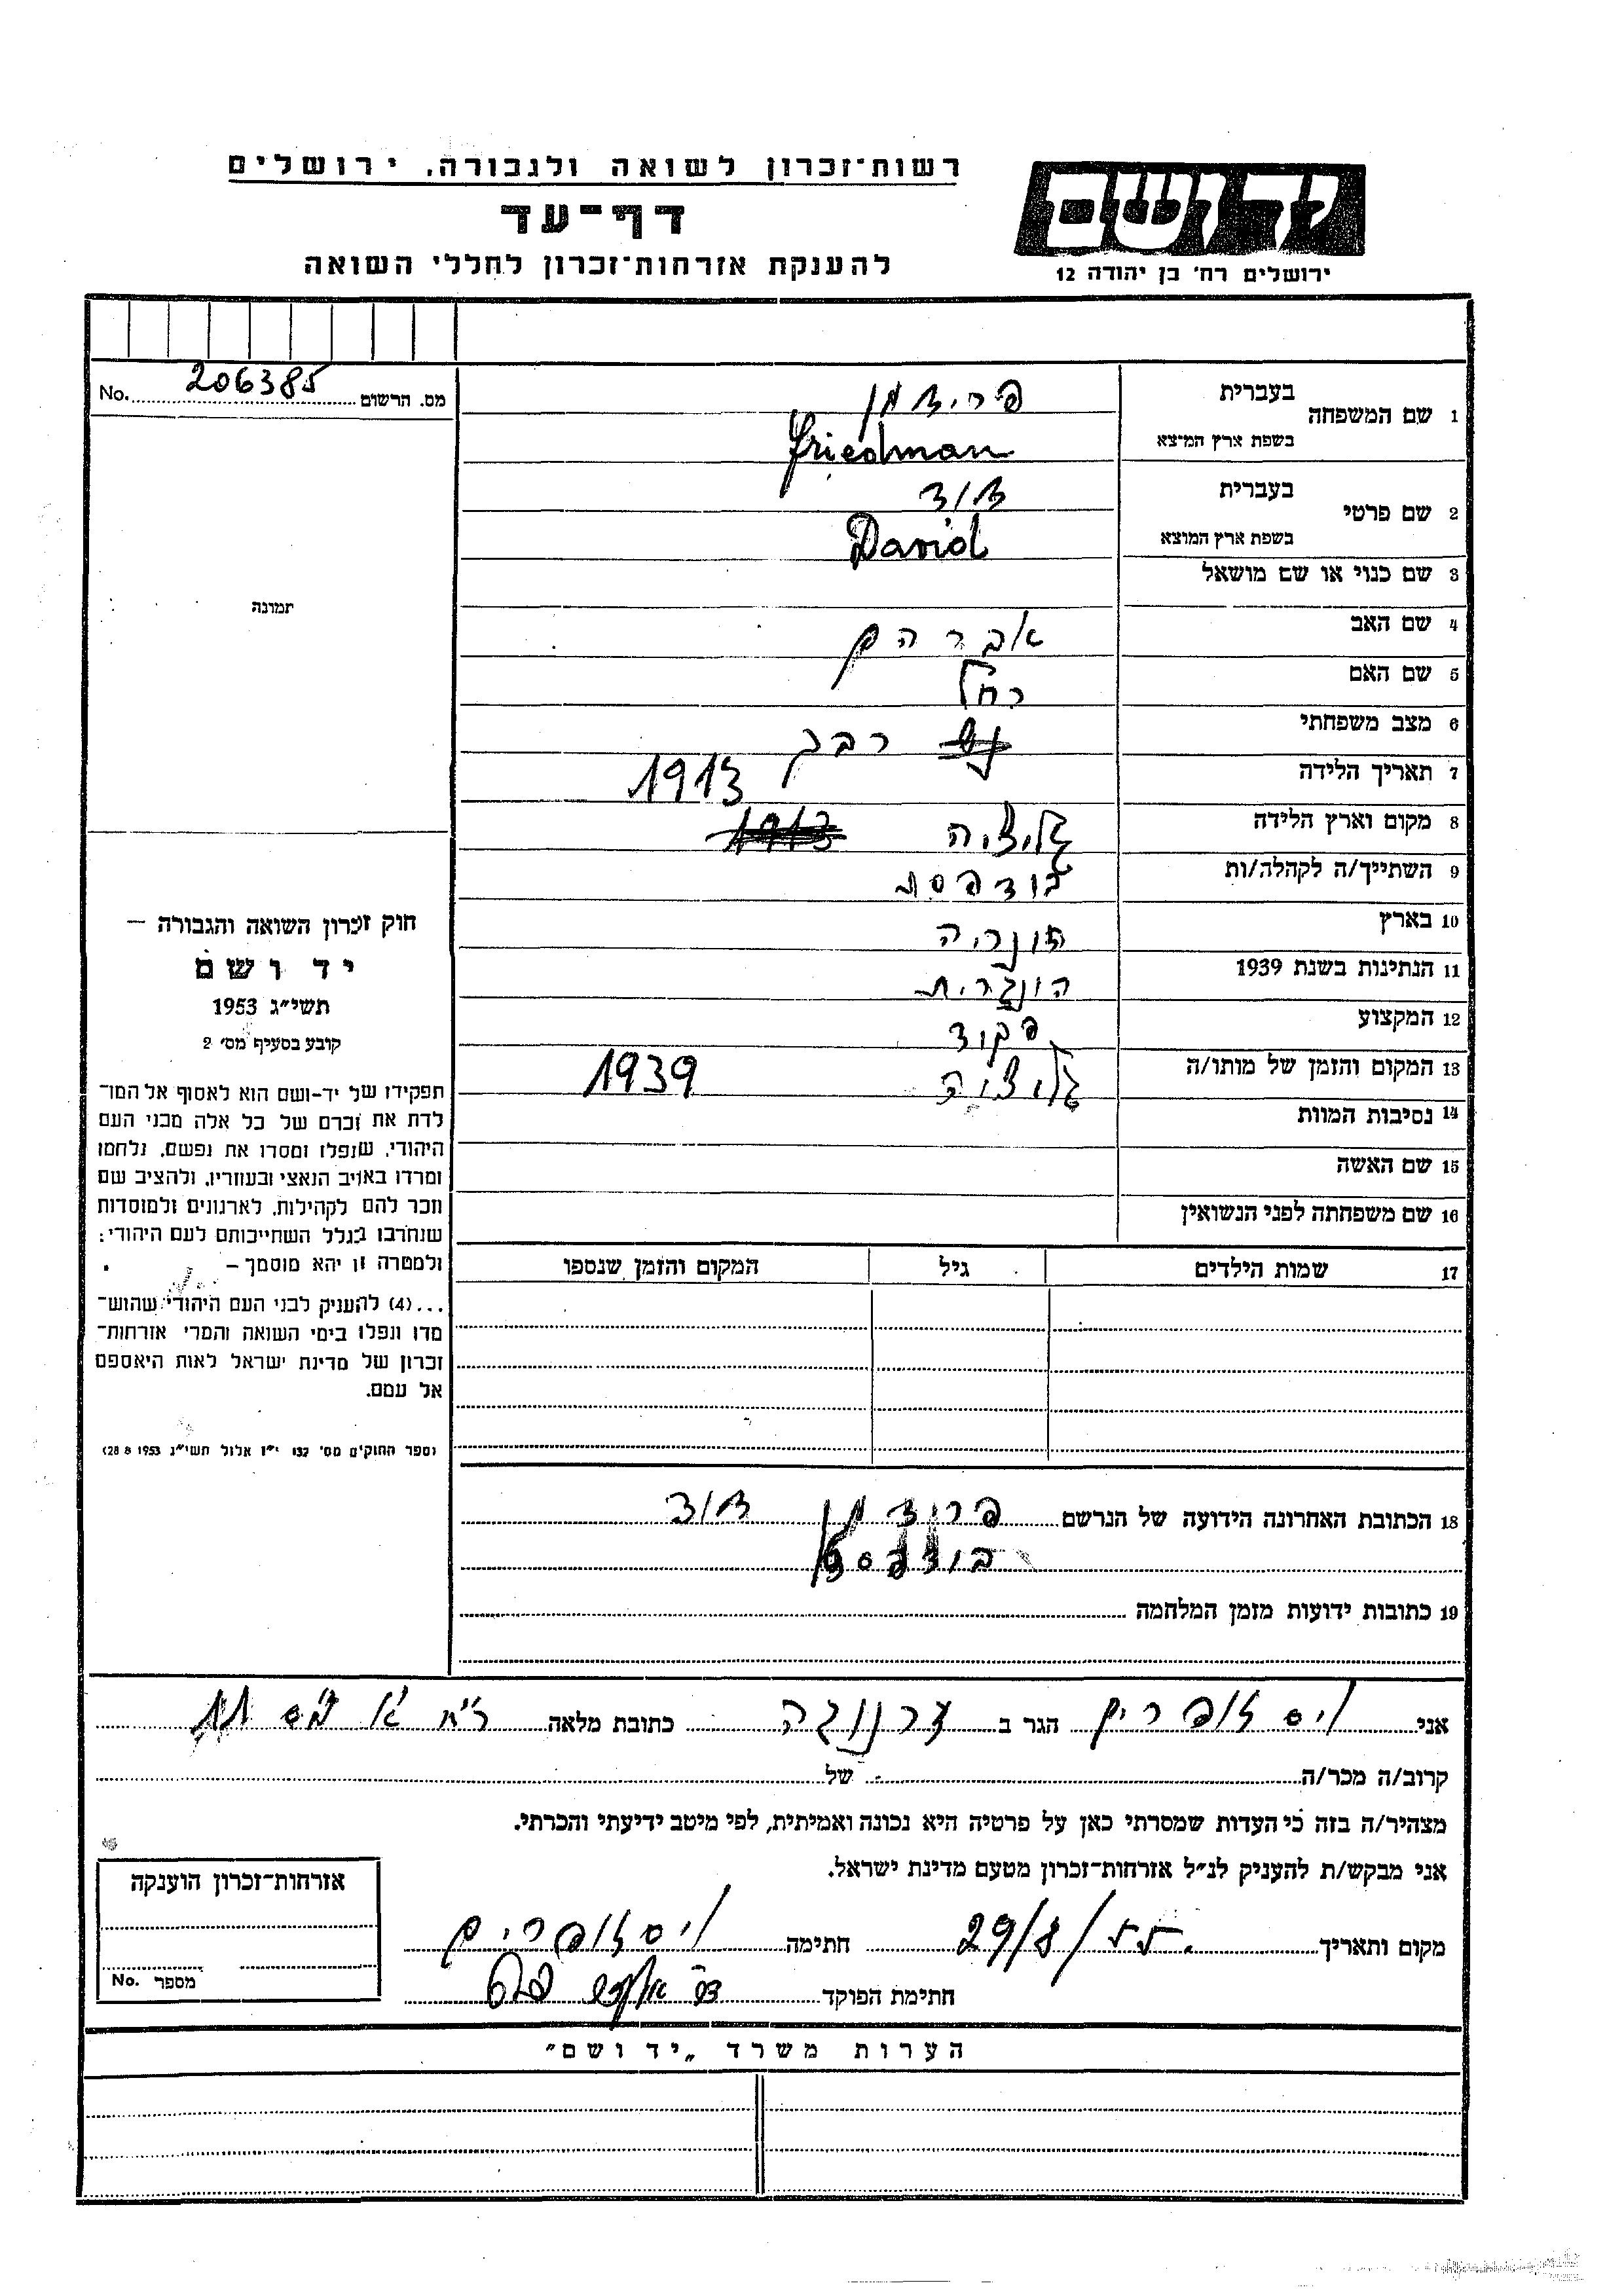 רשות־זכרון לשואה ולגבורה, ירושלים
דף־עד
להענקת אזרחות־זכרון לחללי השואה
יד ושם
ירושלים רח' בן יהודה 12
מס. הרשום 206385 No.
תמונה
1 שם המשפחה
בעברית פרידמן
בשפת ארץ המוצא Friedman
2 שם פרטי
בעברית דוד
בשפת ארץ המוצא David
3 שם כנוי או שם מושאל
4 שם האב אברהם
5 שם האם רחל
6 מצב משפחתי רבק
7 תאריך הלידה 1913
8 מקום וארץ הלידה גליציה 1913
9 השתייך/ה לקהלה/ות בודפסט
10 בארץ הונגריה
11 הנתינות בשנת 1939 הונגרית
12 המקצוע פקיד
13 המקום והזמן של מותו/ה גליציה 1939
14 נסיבות המוות
15 שם האשה
16 שם משפחתה לפני הנשואין
17 שמות הילדים גיל המקום והזמן שנספו
חוק זכרון השואה והגבורה –
יד ושם
תשי״ג 1953
קובע בסעיף מס' 2
תפקידו של יד-ושם הוא לאסוף אל המו־
לדת את זכרם של כל אלה מבני העם
היהודי, שנפלו ומסרו את נפשם, נלחמו
ומרדו באויב הנאצי ובעוזריו, ולהציב שם
וזכר להם לקהילות, לארגונים ולמוסדות
שנחרבו בגלל השתייכותם לעם היהודי;
ולמטרה זו יהא מוסמך –
...(4) להעניק לבני העם היהודי שהוש־
מדו ונפלו בימי השואה והמרי אזרחות־
זכרון של מדינת ישראל לאות היאספם
אל עמם.
(ספר החוקים מס' 132 י״ז אלול תשי״ג 28.8.1953)
18 הכתובת האחרונה הידועה של הנרשם פרידמן דוד
בודפסט
19 כתובות ידועות מזמן המלחמה
אני הגר ב כתובת מלאה
קרוב/ה מכר/ה של
מצהיר/ה בזה כי העדות שמסרתי כאן על פרטיה היא נכונה ואמיתית, לפי מיטב ידיעתי והכרתי.
אני מבקש/ת להעניק לנ״ל אזרחות־זכרון מטעם מדינת ישראל.
מקום ותאריך 29/8/55. חתימה
חתימת הפוקד
אזרחות־זכרון הוענקה
מספר No.
הערות משרד „יד ושם״